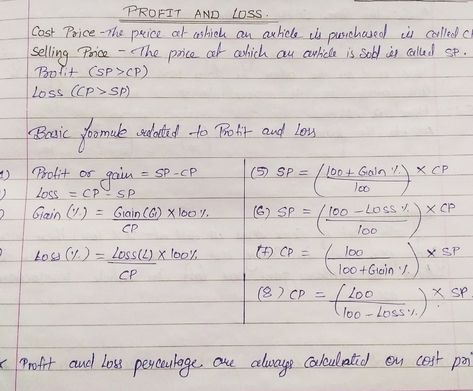 PROFIT AND LOSS.
Cost Price - the price at which an article is purchased is called C
Selling Price - The price at which an article is sold is called SP.
Profit (SP>CP)
Loss (CP>SP)
Basic formula related to Profit and Loss
1) Profit or gain = SP-CP
) Loss = CP - SP
) Gain (%) = Gain(G) × 100%
CP
) Loss (%) = Loss(L) × 100%
CP
(5) SP = (100 + Gain % / 100) × CP
(6) SP = (100 - Loss % / 100) × CP
(7) CP = (100 / 100 + Gain %) × SP
(8) CP = (100 / 100 - Loss %) × SP
Profit and Loss percentage are always calculated on cost pri